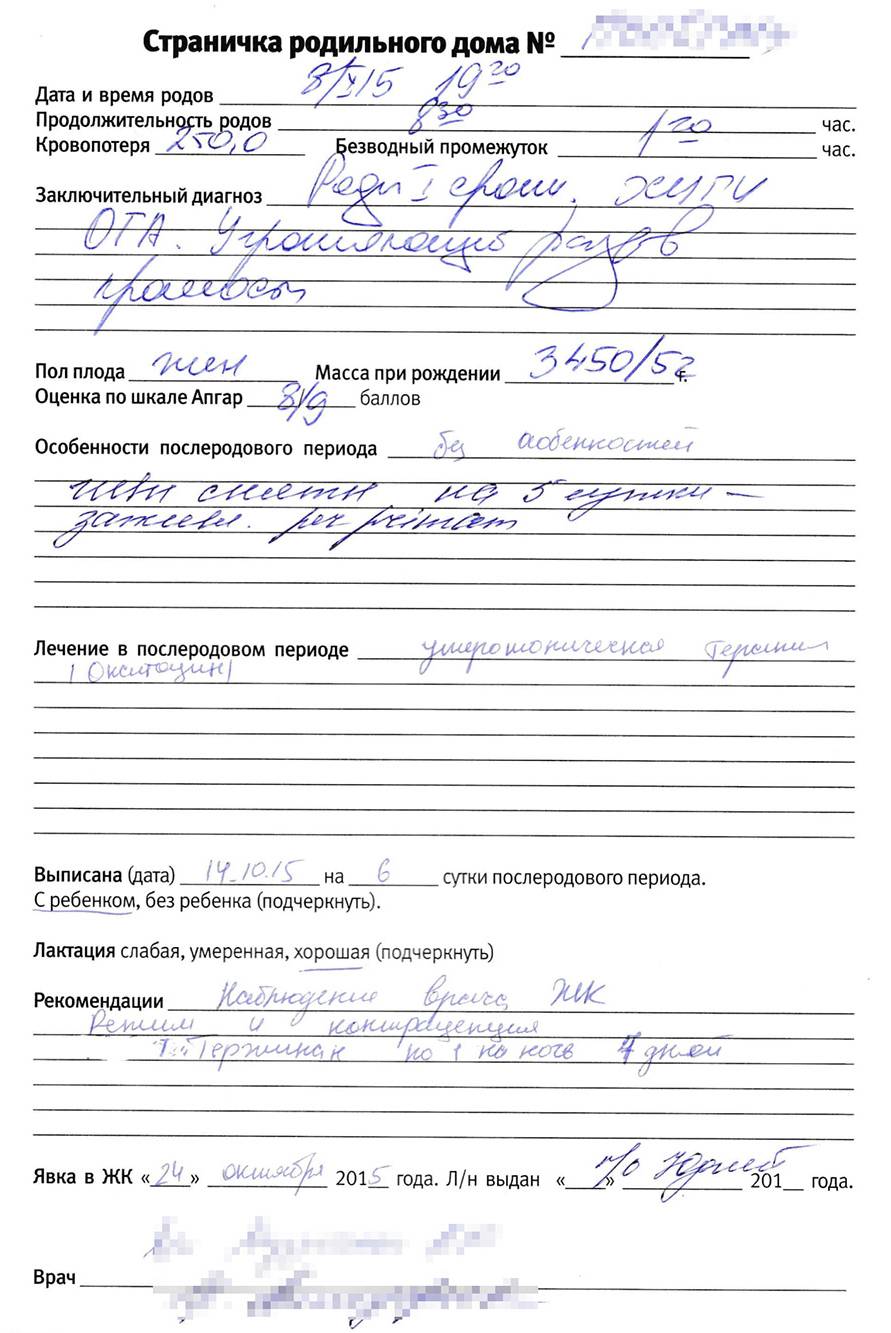 Страничка родильного дома №
Дата и время родов 8/X/15 19 20
Продолжительность родов 8 30 час.
Кровопотеря 250,0 Безводный промежуток 1 20 час.
Заключительный диагноз Роды I срочн. ХИГИ
ОГА. Угрожающий разрыв
промежн
Пол плода жен Масса при рождении 3450/52 г.
Оценка по шкале Апгар 8/9 баллов
Особенности послеродового периода без особенностей
швы сняты на 5 сутки –
зажив. per primam
Лечение в послеродовом периоде утеротоническая терапия
(Окситоцин)
Выписана (дата) 14.10.15 на 6 сутки послеродового периода.
С ребенком, без ребенка (подчеркнуть).
Лактация слабая, умеренная, хорошая (подчеркнуть)
Рекомендации Наблюдение врача ЖК
Режим и контрацепция
Тержинан по 1 на ночь 7 дней
Явка в ЖК «24» октября 2015 года. Л/н выдан «__» 201__ года.
Врач